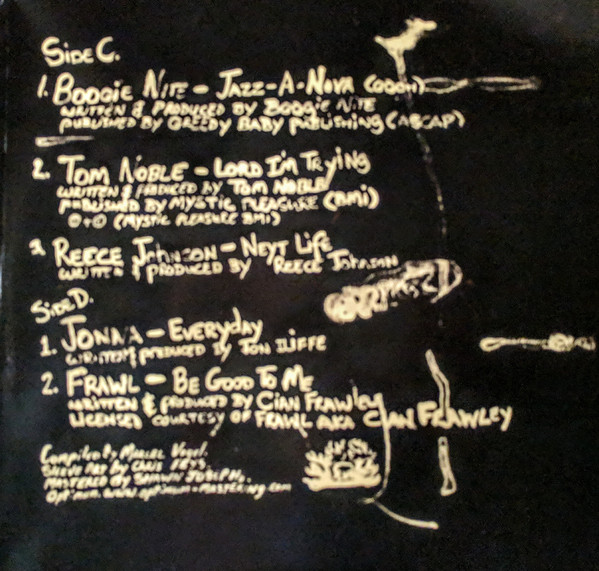 Side C.
1. Boogie Nite – Jazz-A-Nova (oooh)
written & produced by Boogie Nite
published by Greedy Baby publishing (ASCAP)
2. Tom Noble – Lord I'm Trying
written & produced by Tom Noble
published by Mystic Pleasure (BMI)
℗+© (Mystic Pleasure BMI)
3 Reece Johnson – Next Life
written & produced by Reece Johnson
Side D.
1. Jonna – Everyday
written & produced by Jon Iliffe
2. Frawl – Be Good To Me
written & produced by Cian Frawley
Licensed courtesy of Frawl aka Cian Frawley
Compiled by Muriel Vogel.
Sleeve Art by
Mastered by Shawn Joseph.
Optimum. www.optimum-mastering.com